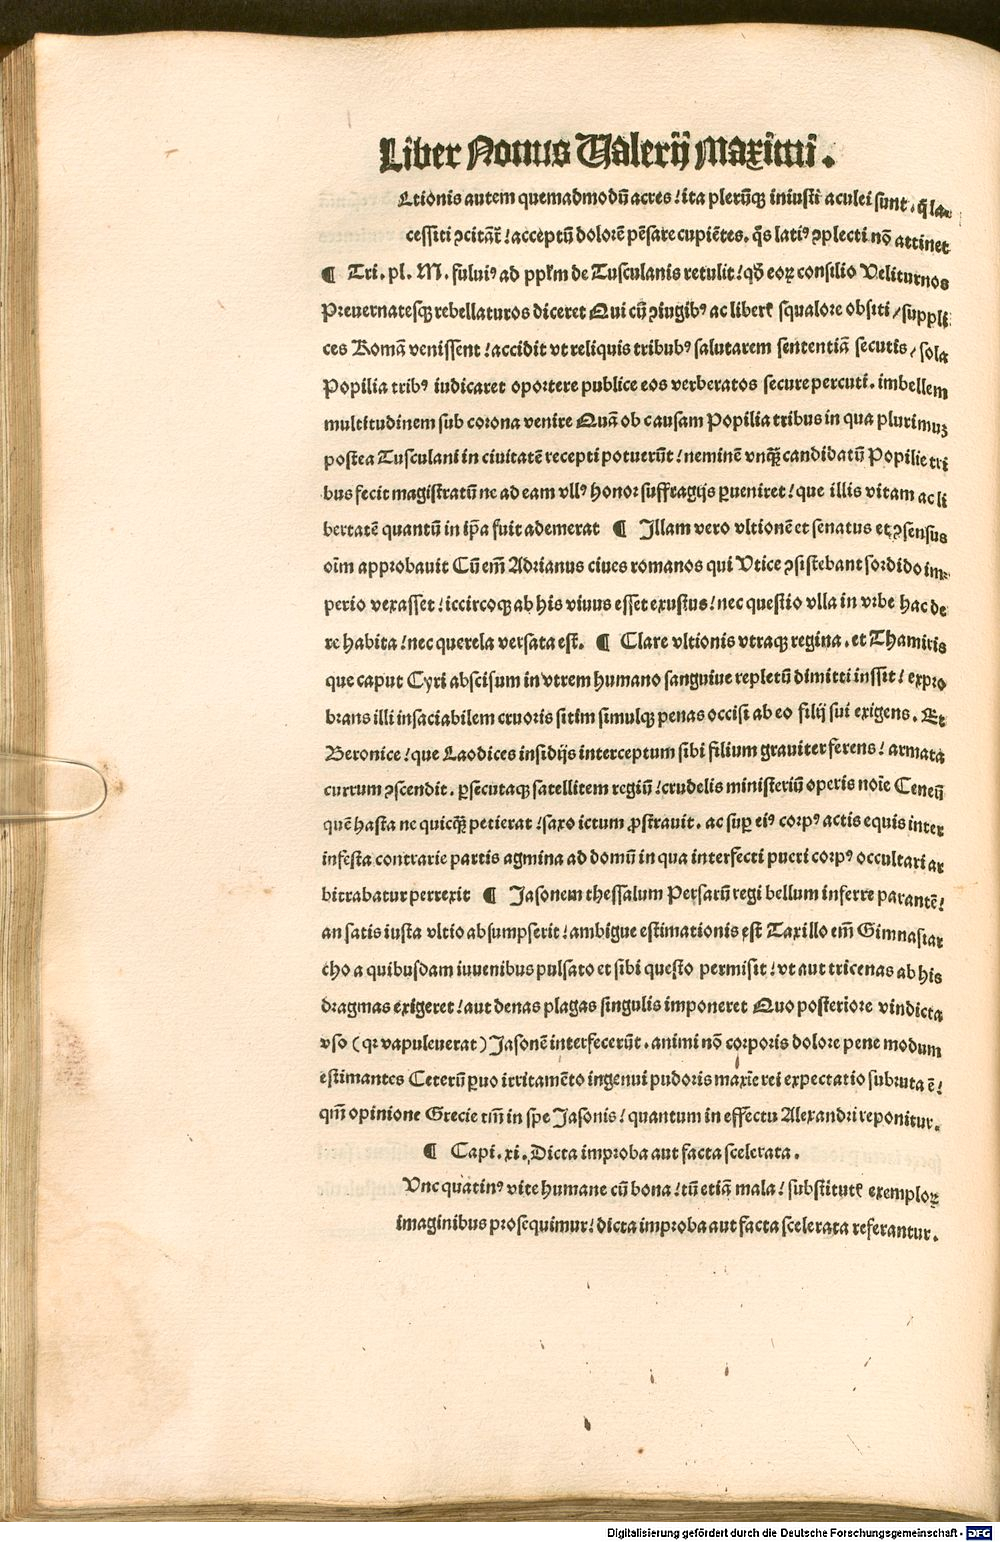 Liber Nonus Ualerij Maximi.
Ltionis autem quemadmodũ acres/ ita plerũqꝫ iniusti aculei sunt. q̃ la⸗
cessiti ꝯcitãt̃/ acceptũ dolorẽ pẽsare cupiẽtes. q̃s latiꝰ ꝯplecti nõ attinet
¶ Tri. pl. M. fuluiꝰ ad pplm̃ de Tusculanis retulit/ qd̃ eoꝝ consilio Veliturnos
Preuernatesqꝫ rebellaturos diceret Qui cũ ꝯiugibꝰ ac libert̃ squalore obsiti/ suppli
ces Romã venissent/ accidit vt reliquis tribubꝰ salutarem sententiã secutis/ sola
Popilia tribꝰ iudicaret oportere publice eos verberatos secure percuti. imbellem
multitudinem sub corona venire Quã ob causam Popilia tribus in qua plurimuꝫ
postea Tusculani in ciuitatẽ recepti potuerũt/ neminẽ vnqꝫ̃ candidatũ Popilie tri
bus fecit magistratũ ne ad eam vllꝰ honor suffragijs ꝑueniret/ que illis vitam ac li
bertatẽ quantũ in ip̃a fuit ademerat ¶ Illam vero vltionẽ et senatus et ꝯsensus
oĩm approbauit Cũ em̃ Adrianus ciues romanos qui Vtice ꝯsistebant sordido im⸗
perio vexasset/ iccircoqꝫ ab his viuus esset exustus/ nec questio vlla in vrbe hac de
re habita/ nec querela versata est. ¶ Clare vltionis vtraqꝫ regina. et Thamiris
que caput Cyri abscisum in vtrem humano sanguine repletũ dimitti iussit/ expro
brans illi insaciabilem cruoris sitim simulqꝫ penas occisi ab eo filij sui exigens. Et
Beronice/ que Laodices insidijs interceptum sibi filium grauiter ferens/ armata
currum ꝯscendit. ꝑsecutaqꝫ satellitem regiũ/ crudelis ministeriũ operis noĩe Ceneũ
quẽ hasta ne quicqꝫ̃ petierat/ saxo ictum ꝓstrauit. ac suꝑ eiꝰ corpꝰ actis equis inter
infesta contrarie partis agmina ad domũ in qua interfecti pueri corpꝰ occultari ar
bitrabatur perrexit ¶ Jasonem thessalum Persarũ regi bellum inferre parantẽ/
an satis iusta vltio absumpserit/ ambigue estimationis est Taxillo em̃ Gimnasiar
cho a quibusdam iuuenibus pulsato et sibi questo permisit/ vt aut tricenas ab his
dragmas exigeret/ aut denas plagas singulis imponeret Quo posteriore vindicta
vso (qr vapuleuerat) Jasonẽ interfecerũt. animi nõ corporis dolore pene modum
estimantes Ceterũ ꝑuo irritamẽto ingenui pudoris maxĩe rei expectatio subruta ẽ/
qm̃ opinione Grecie tm̃ in spe Jasonis/ quantum in effectu Alexandri reponitur.
¶ Capi. xi. Dicta improba aut facta scelerata.
Vnc quatinꝰ vite humane cũ bona/ tũ etiã mala/ substitut̃ exemploꝝ
imaginibus prosequimur/ dicta improba aut facta scelerata referantur.
Digitalisierung gefördert durch die Deutsche Forschungsgemeinschaft - DFG